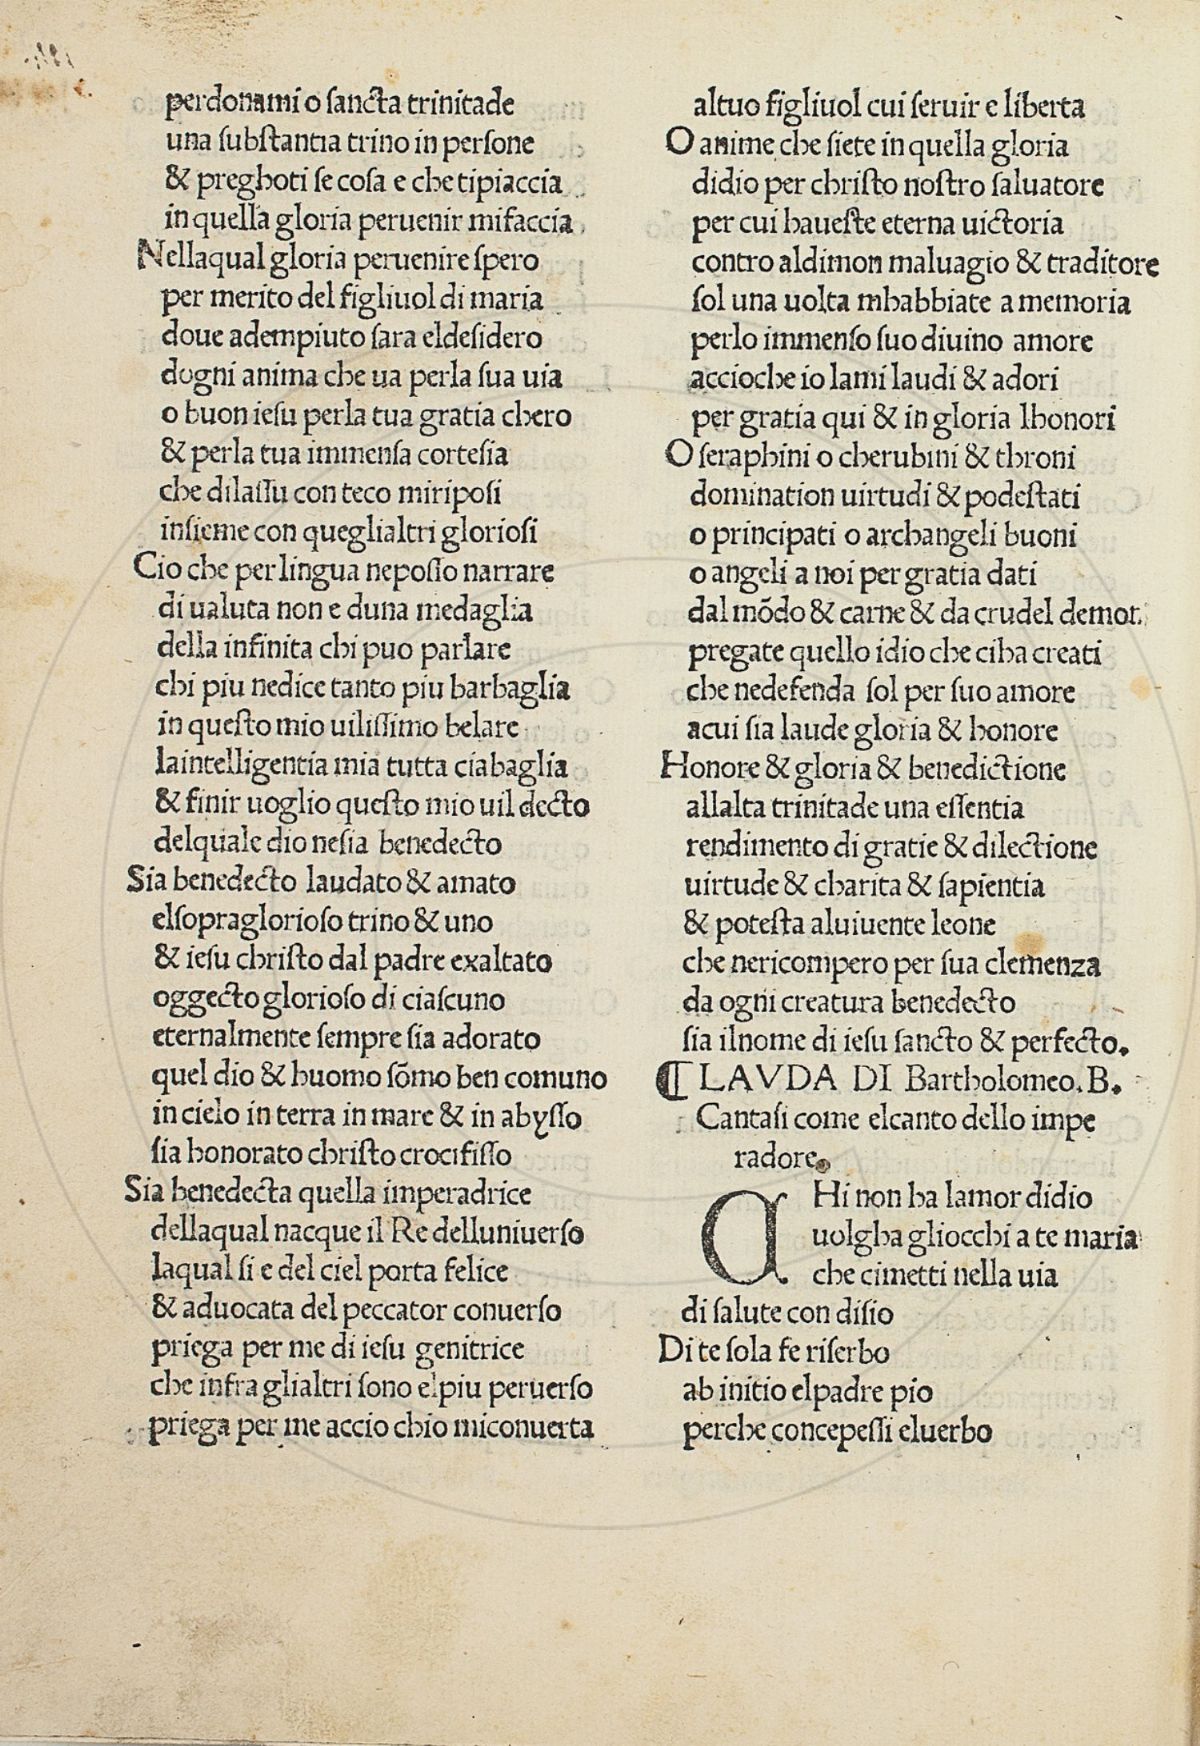 perdonami o sancta trinitade
una substantia trino in persone
& preghoti se cosa e che tipiaccia
in quella gloria peruenir mifaccia
Nellaqual gloria peruenire spero
per merito del figliuol di maria
doue adempiuto sara eldesidero
dogni anima che ua perla sua uia
o buon iesu perla tua gratia chero
& perla tua immensa cortesia
che dilassu con teco miriposi
insieme con queglialtri gloriosi
Cio che per lingua neposso narrare
di ualuta non e duna medaglia
della infinita chi puo parlare
chi piu nedice tanto piu barbaglia
in questo mio uilissimo belare
laintelligentia mia tutta ciabaglia
& finir uoglio questo mio uil decto
delquale dio nesia benedecto
Sia benedecto laudato & amato
elsopraglorioso trino & uno
& iesu christo dal padre exaltato
oggecto glorioso di ciascuno
eternalmente sempre sia adorato
quel dio & huomo sõmo ben comuno
in cielo in terra in mare & in abysso
sia honorato christo crocifisso
Sia benedecta quella imperadrice
dellaqual nacque il Re delluniuerso
laqual si e del ciel porta felice
& aduocata del peccator conuerso
priega per me di iesu genitrice
che infra glialtri sono elpiu peruerso
priega per me accio chio miconuerta
altuo figliuol cui seruir e liberta
O anime che siete in quella gloria
didio per christo nostro saluatore
per cui haueste eterna uictoria
contro aldimon maluagio & traditore
sol una uolta mhabbiate a memoria
perlo immenso suo diuino amore
accioche io lami laudi & adori
per gratia qui & in gloria lhonori
O seraphini o cherubini & throni
domination uirtudi & podestati
o principati o archangeli buoni
o angeli a noi per gratia dati
dal mõdo & carne & da crudel demon
pregate quello idio che ciha creati
che nedefenda sol per suo amore
acui sia laude gloria & honore
Honore & gloria & benedictione
allalta trinitade una essentia
rendimento di gratie & dilectione
uirtude & charita & sapientia
& potesta aluiuente leone
che nericompero per sua clemenza
da ogni creatura benedecto
sia ilnome di iesu sancto & perfecto.
¶ LAVDA DI Bartholomeo.B.
Cantasi come elcanto dello impe
radore.
CHi non ha lamor didio
uolgha gliocchi a te maria
che cimetti nella uia
di salute con disio
Di te sola fe riserbo
ab initio elpadre pio
perche concepessi eluerbo